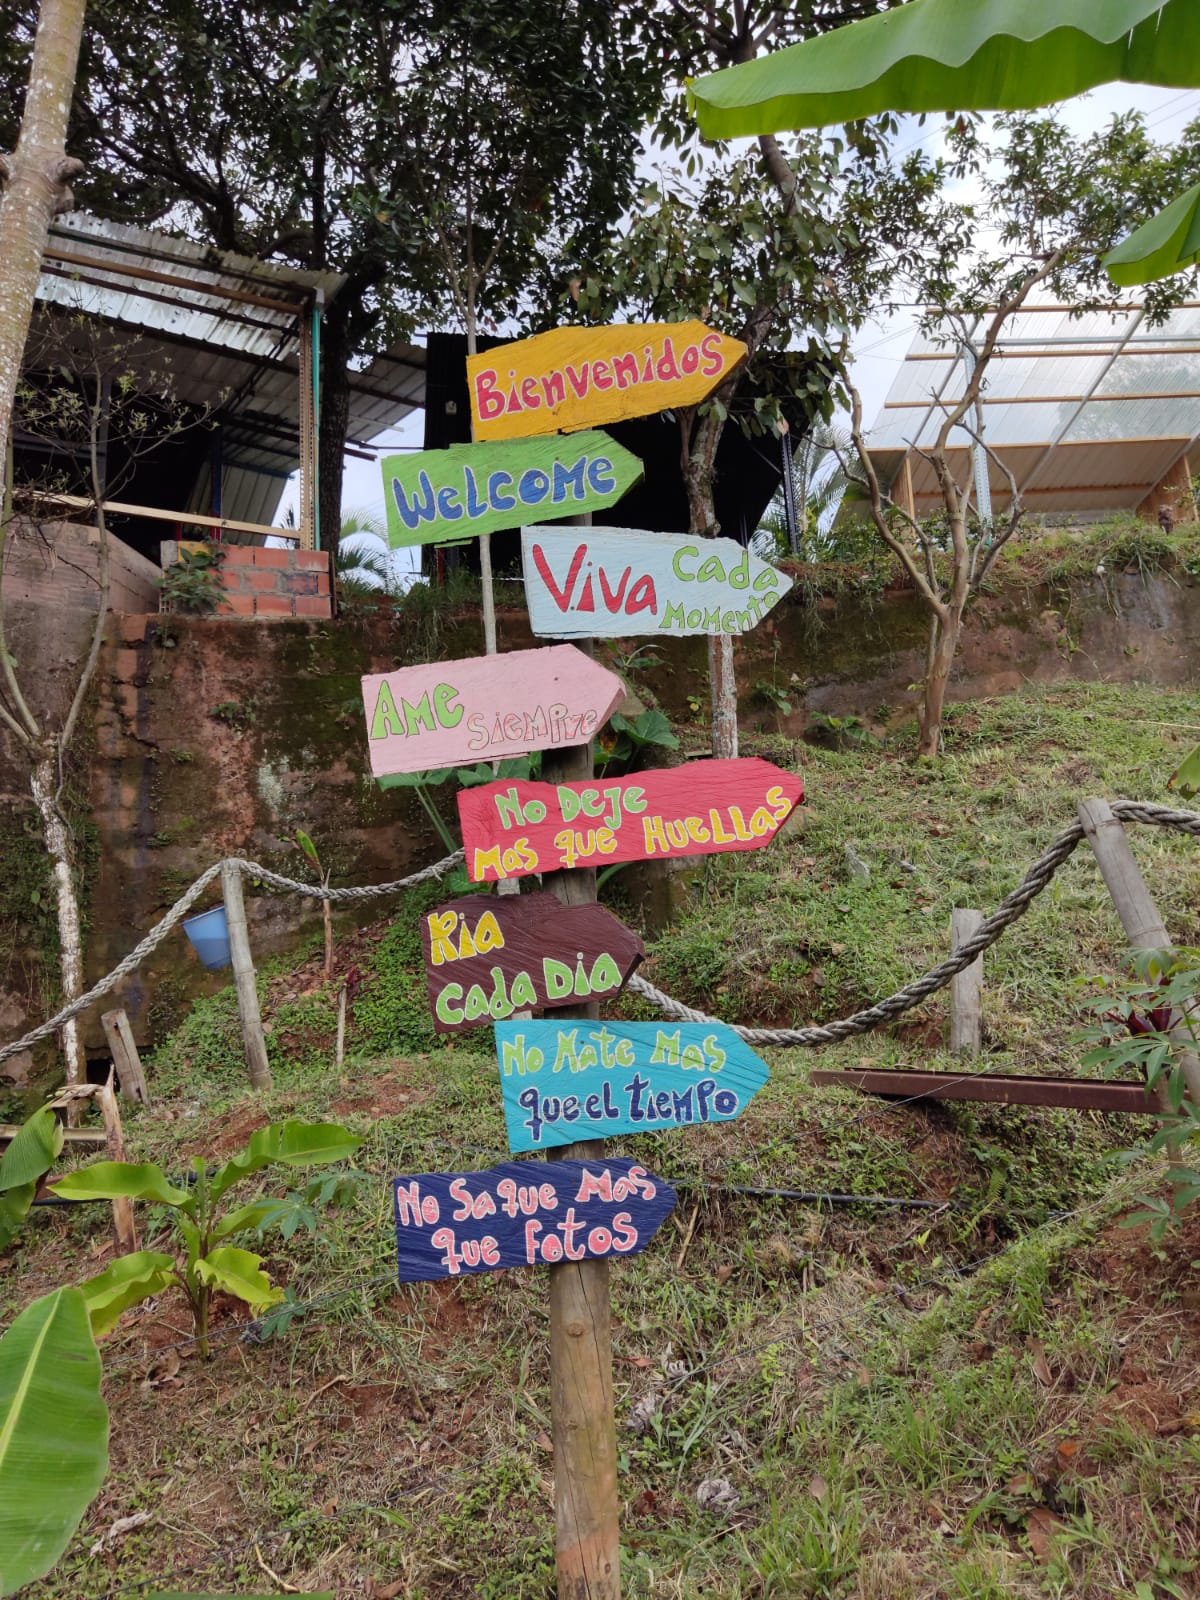 Bienvenidos
Welcome
Viva Cada
Momento
Ame siempre
No Deje
Mas que Huellas
Ria
Cada Dia
No Mate Mas
que el tiempo
No Saque Mas
que Fotos